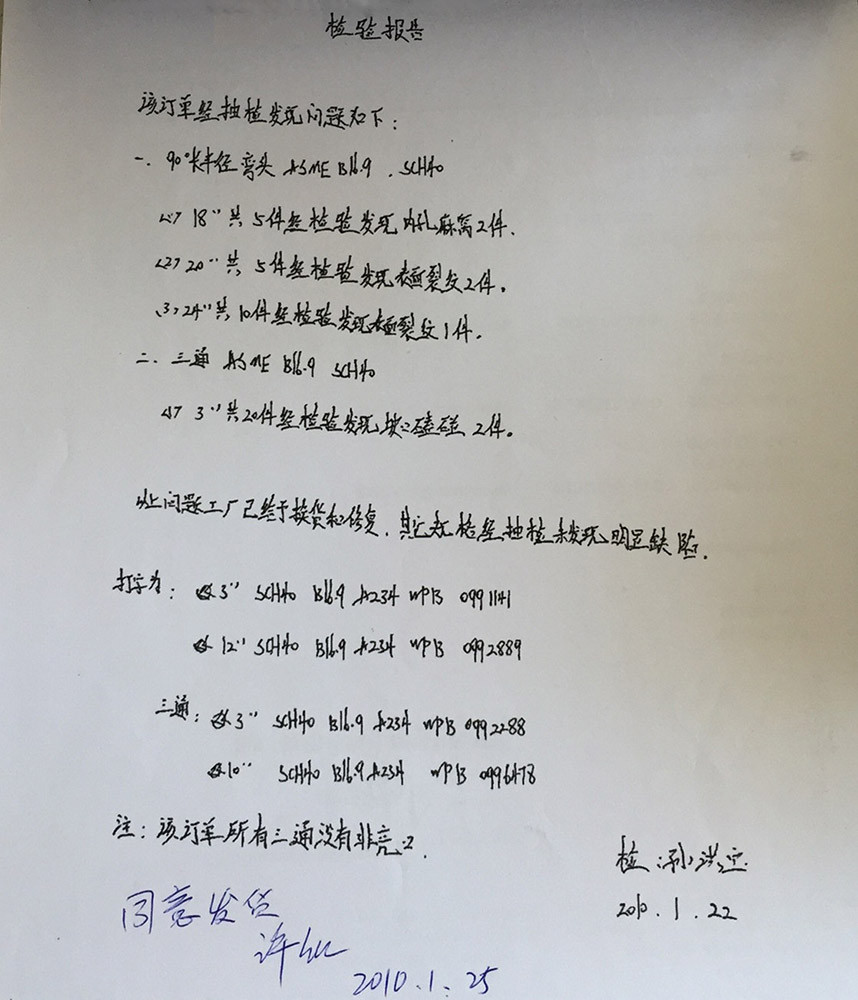 检验报告
该订单经抽检发现问题如下：
一. 90°长半径弯头 ASME B16.9 . SCH40
<1> 18" 共 5件经检验发现 内孔麻窝2件.
<2> 20" 共 5件经检验发现表面裂纹2件。
<3> 24" 共 10件经检验发现表面裂纹1件。
二. 三通 ASME B16.9 SCH40
<1> 3" 共20件经检验发现坡口磕碰 2件。
以上问题工厂已给于换货和修复. 其它规格经抽检未发现明显缺陷.
打字为： 3" SCH40 B16.9 A234 WPB 0991141
12" SCH40 B16.9 A234 WPB 0992889
三通： 3" SCH40 B16.9 A234 WPB 0992288
10" SCH40 B16.9 A234 WPB 0996478
注：该订单所有三通没有非亮口.
检：孙洪
2010.1.22
同意发货
许
2010.1.25